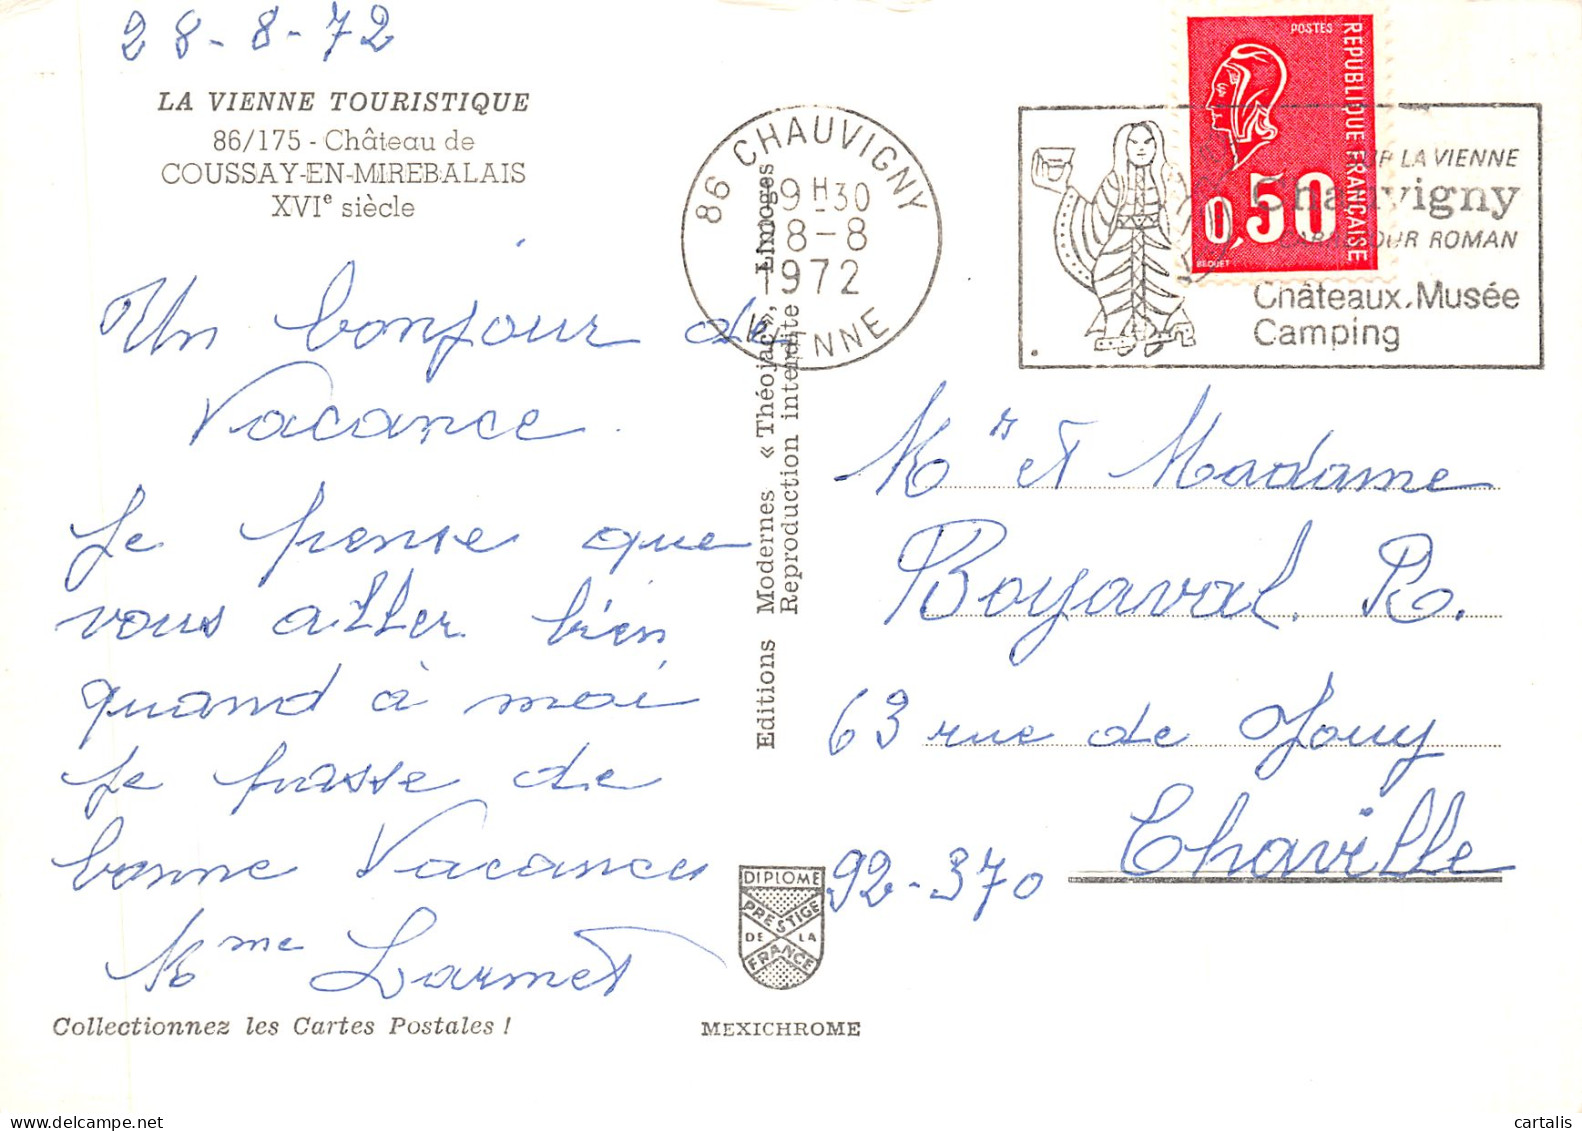 28-8-72
LA VIENNE TOURISTIQUE
86/175 - Château de
COUSSAY-EN-MIREBALAIS
XVIe siècle
Un bonjour de
Vacance.
Je pense que
vous aller bien
quand à moi
je passe de
bonne Vacances
Mme Larmet
Collectionnez les Cartes Postales !
Editions Modernes « Théojac », Limoges
Reproduction interdite
DIPLOME
PRESTIGE
DE LA
FRANCE
MEXICHROME
86 CHAUVIGNY
9H30
28-8
1972
VIENNE
POSTES
REPUBLIQUE FRANÇAISE
0,50
BEQUET
LA VIENNE
Chauvigny
CARREFOUR ROMAN
Châteaux. Musée
Camping
Mr et Madame
Boyaval. R.
63 rue de Jouy
92-370 Chaville
cartalis
delcampe.net